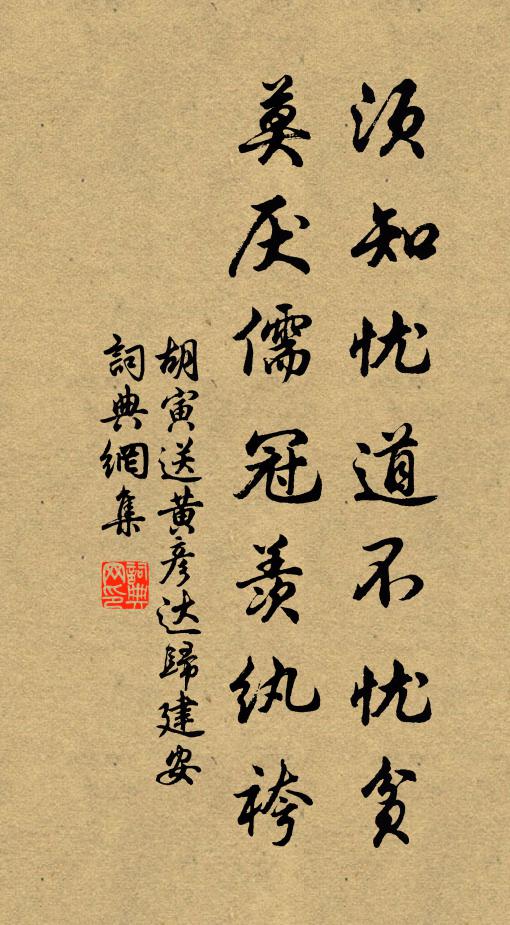 须知忧道不忧贫
莫厌儒冠羡纨袴
胡寅送黄彦达歸建安
詞典網集
詞典网印